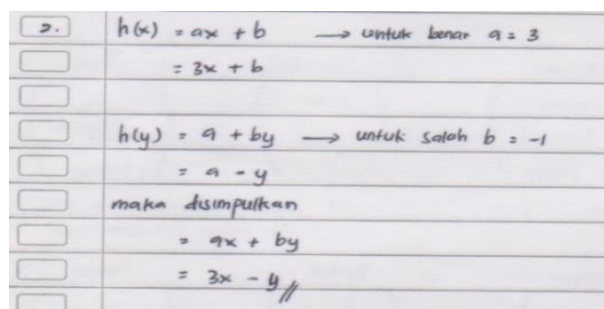 2. h(x) = ax + b → untuk benar a = 3
= 3x + b
h(y) = a + by → untuk salah b = -1
= a - y
maka disimpulkan
= ax + by
= 3x - y //